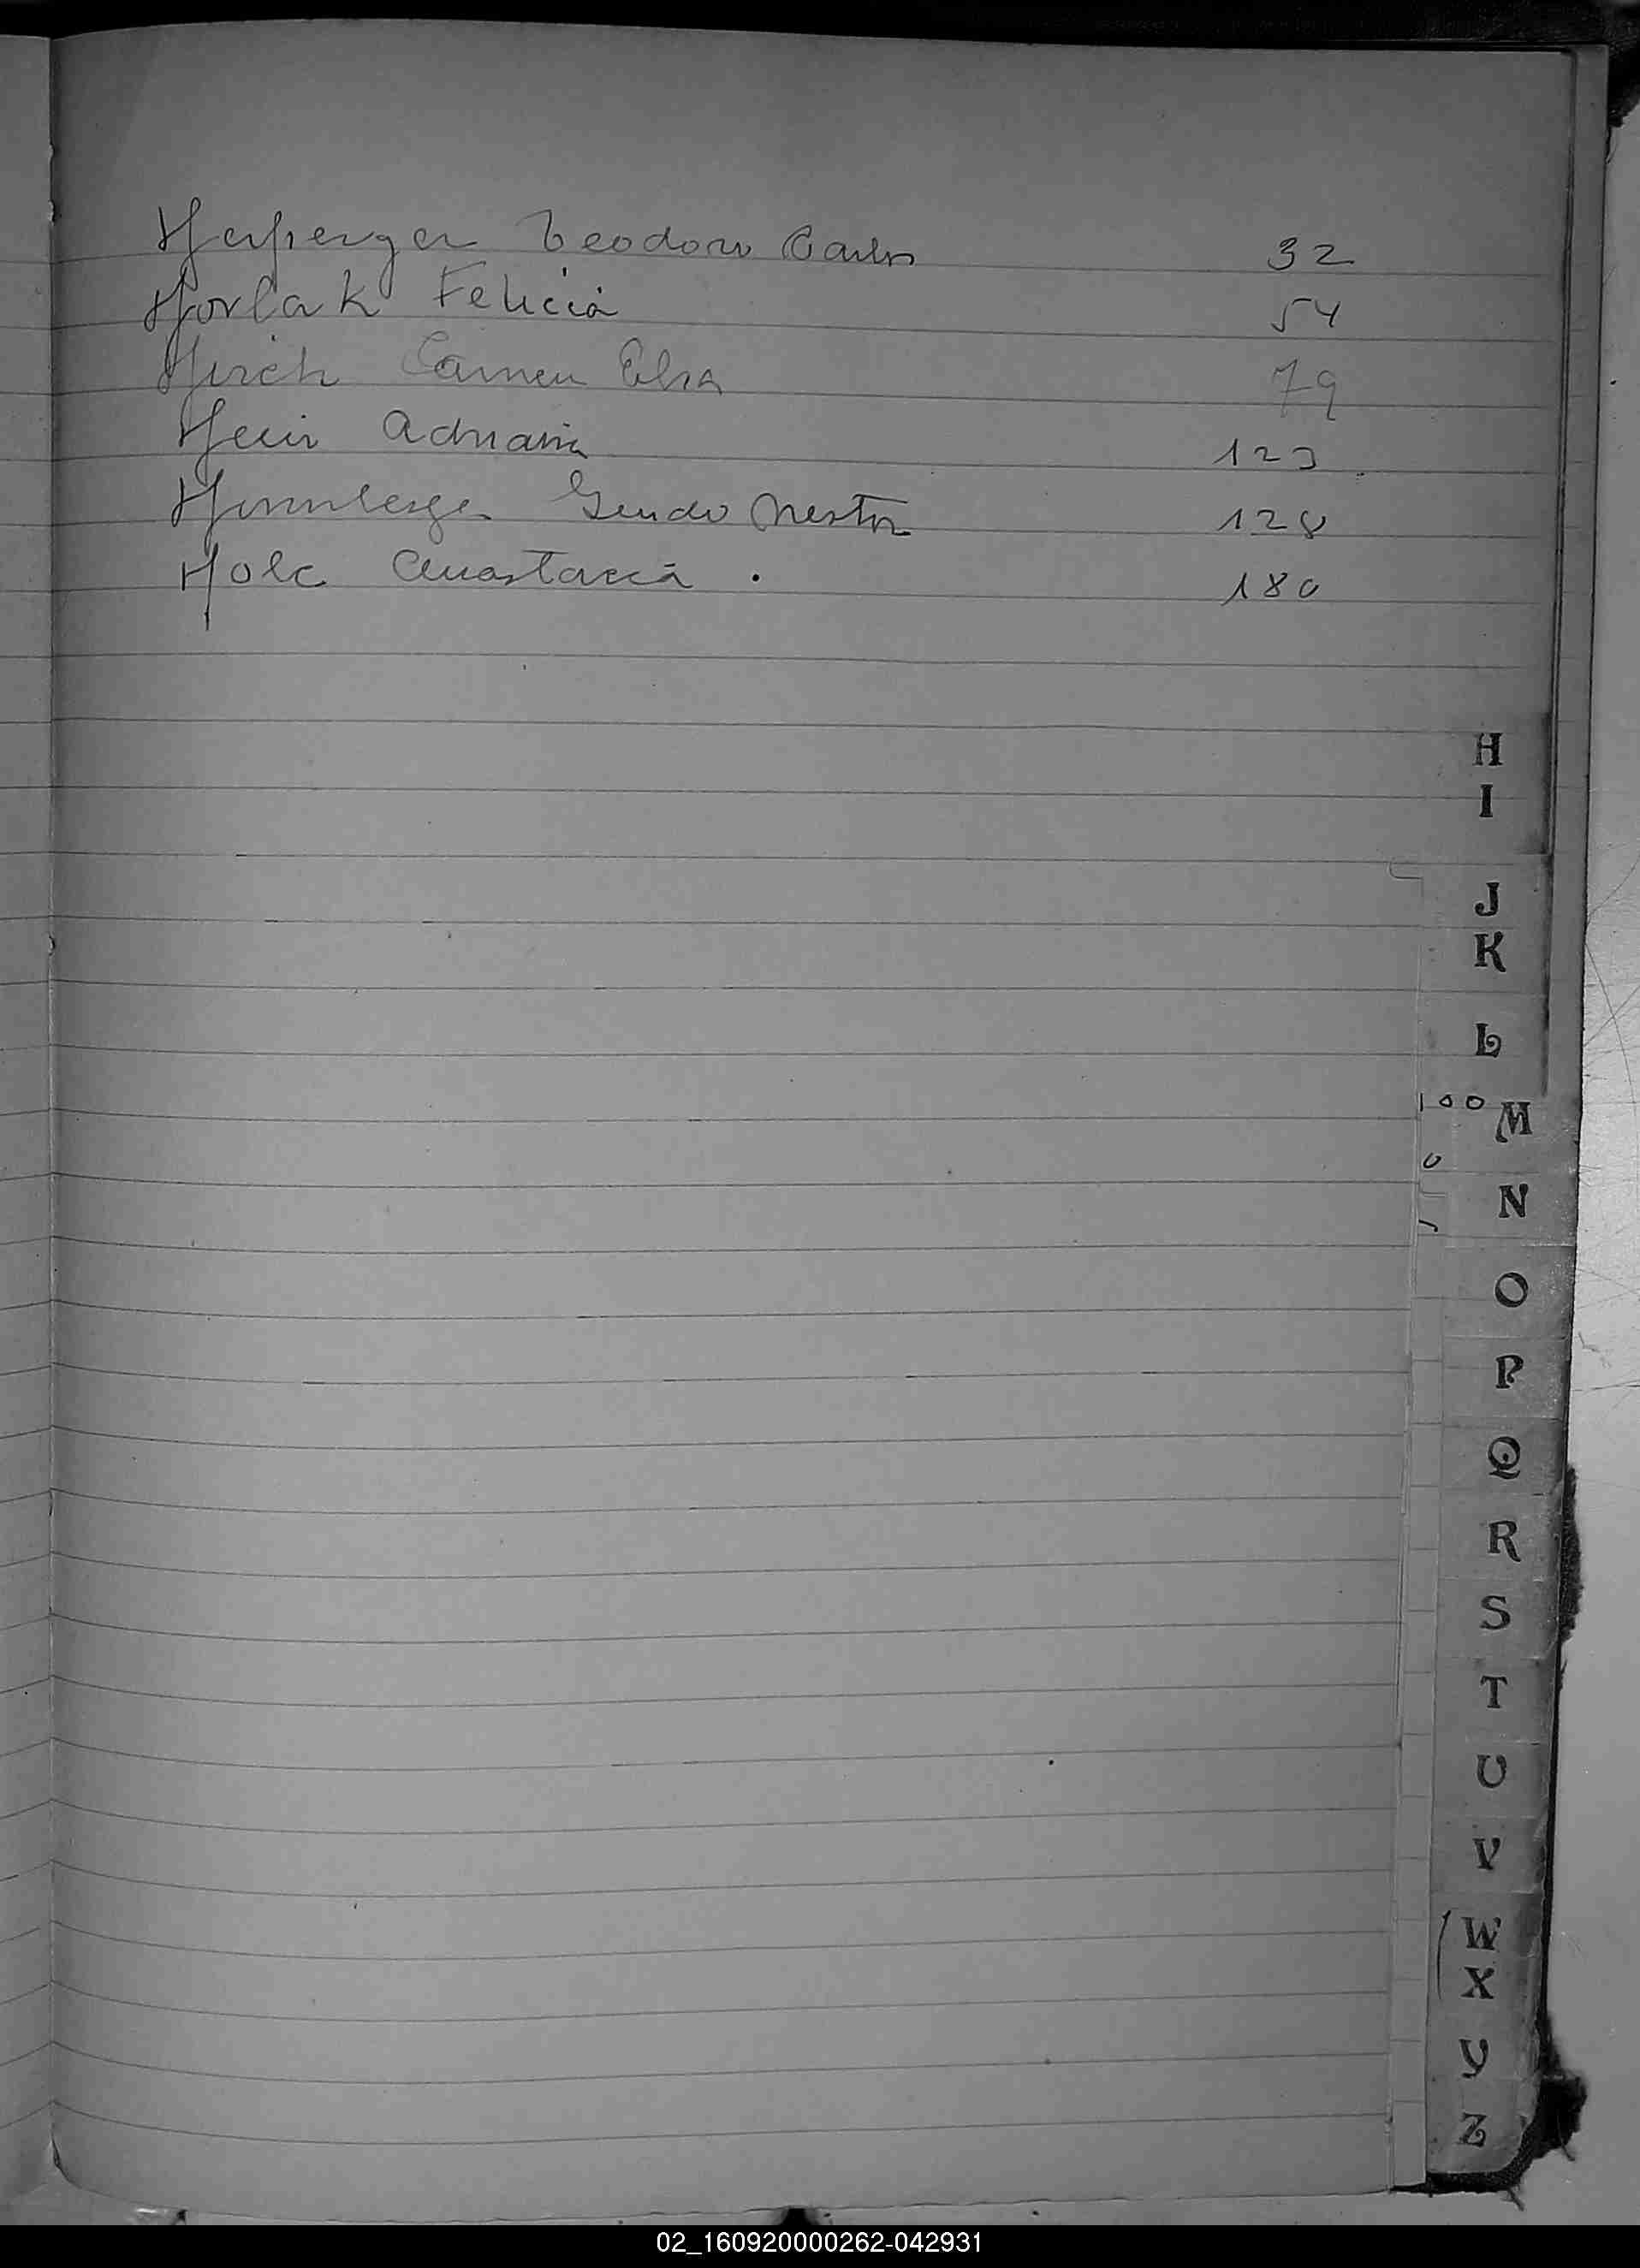 Hersperger Teodoro Carlos 32
Horlak Felicia 54
Hirch Carmen Elsa 79
Adriana 123
Guido Nestor 128
Holc Anastacia. 180
H
I
J
K
L
100 M
N
O
P
Q
R
S
T
U
V
W
X
Y
Z
02_160920000262-042931